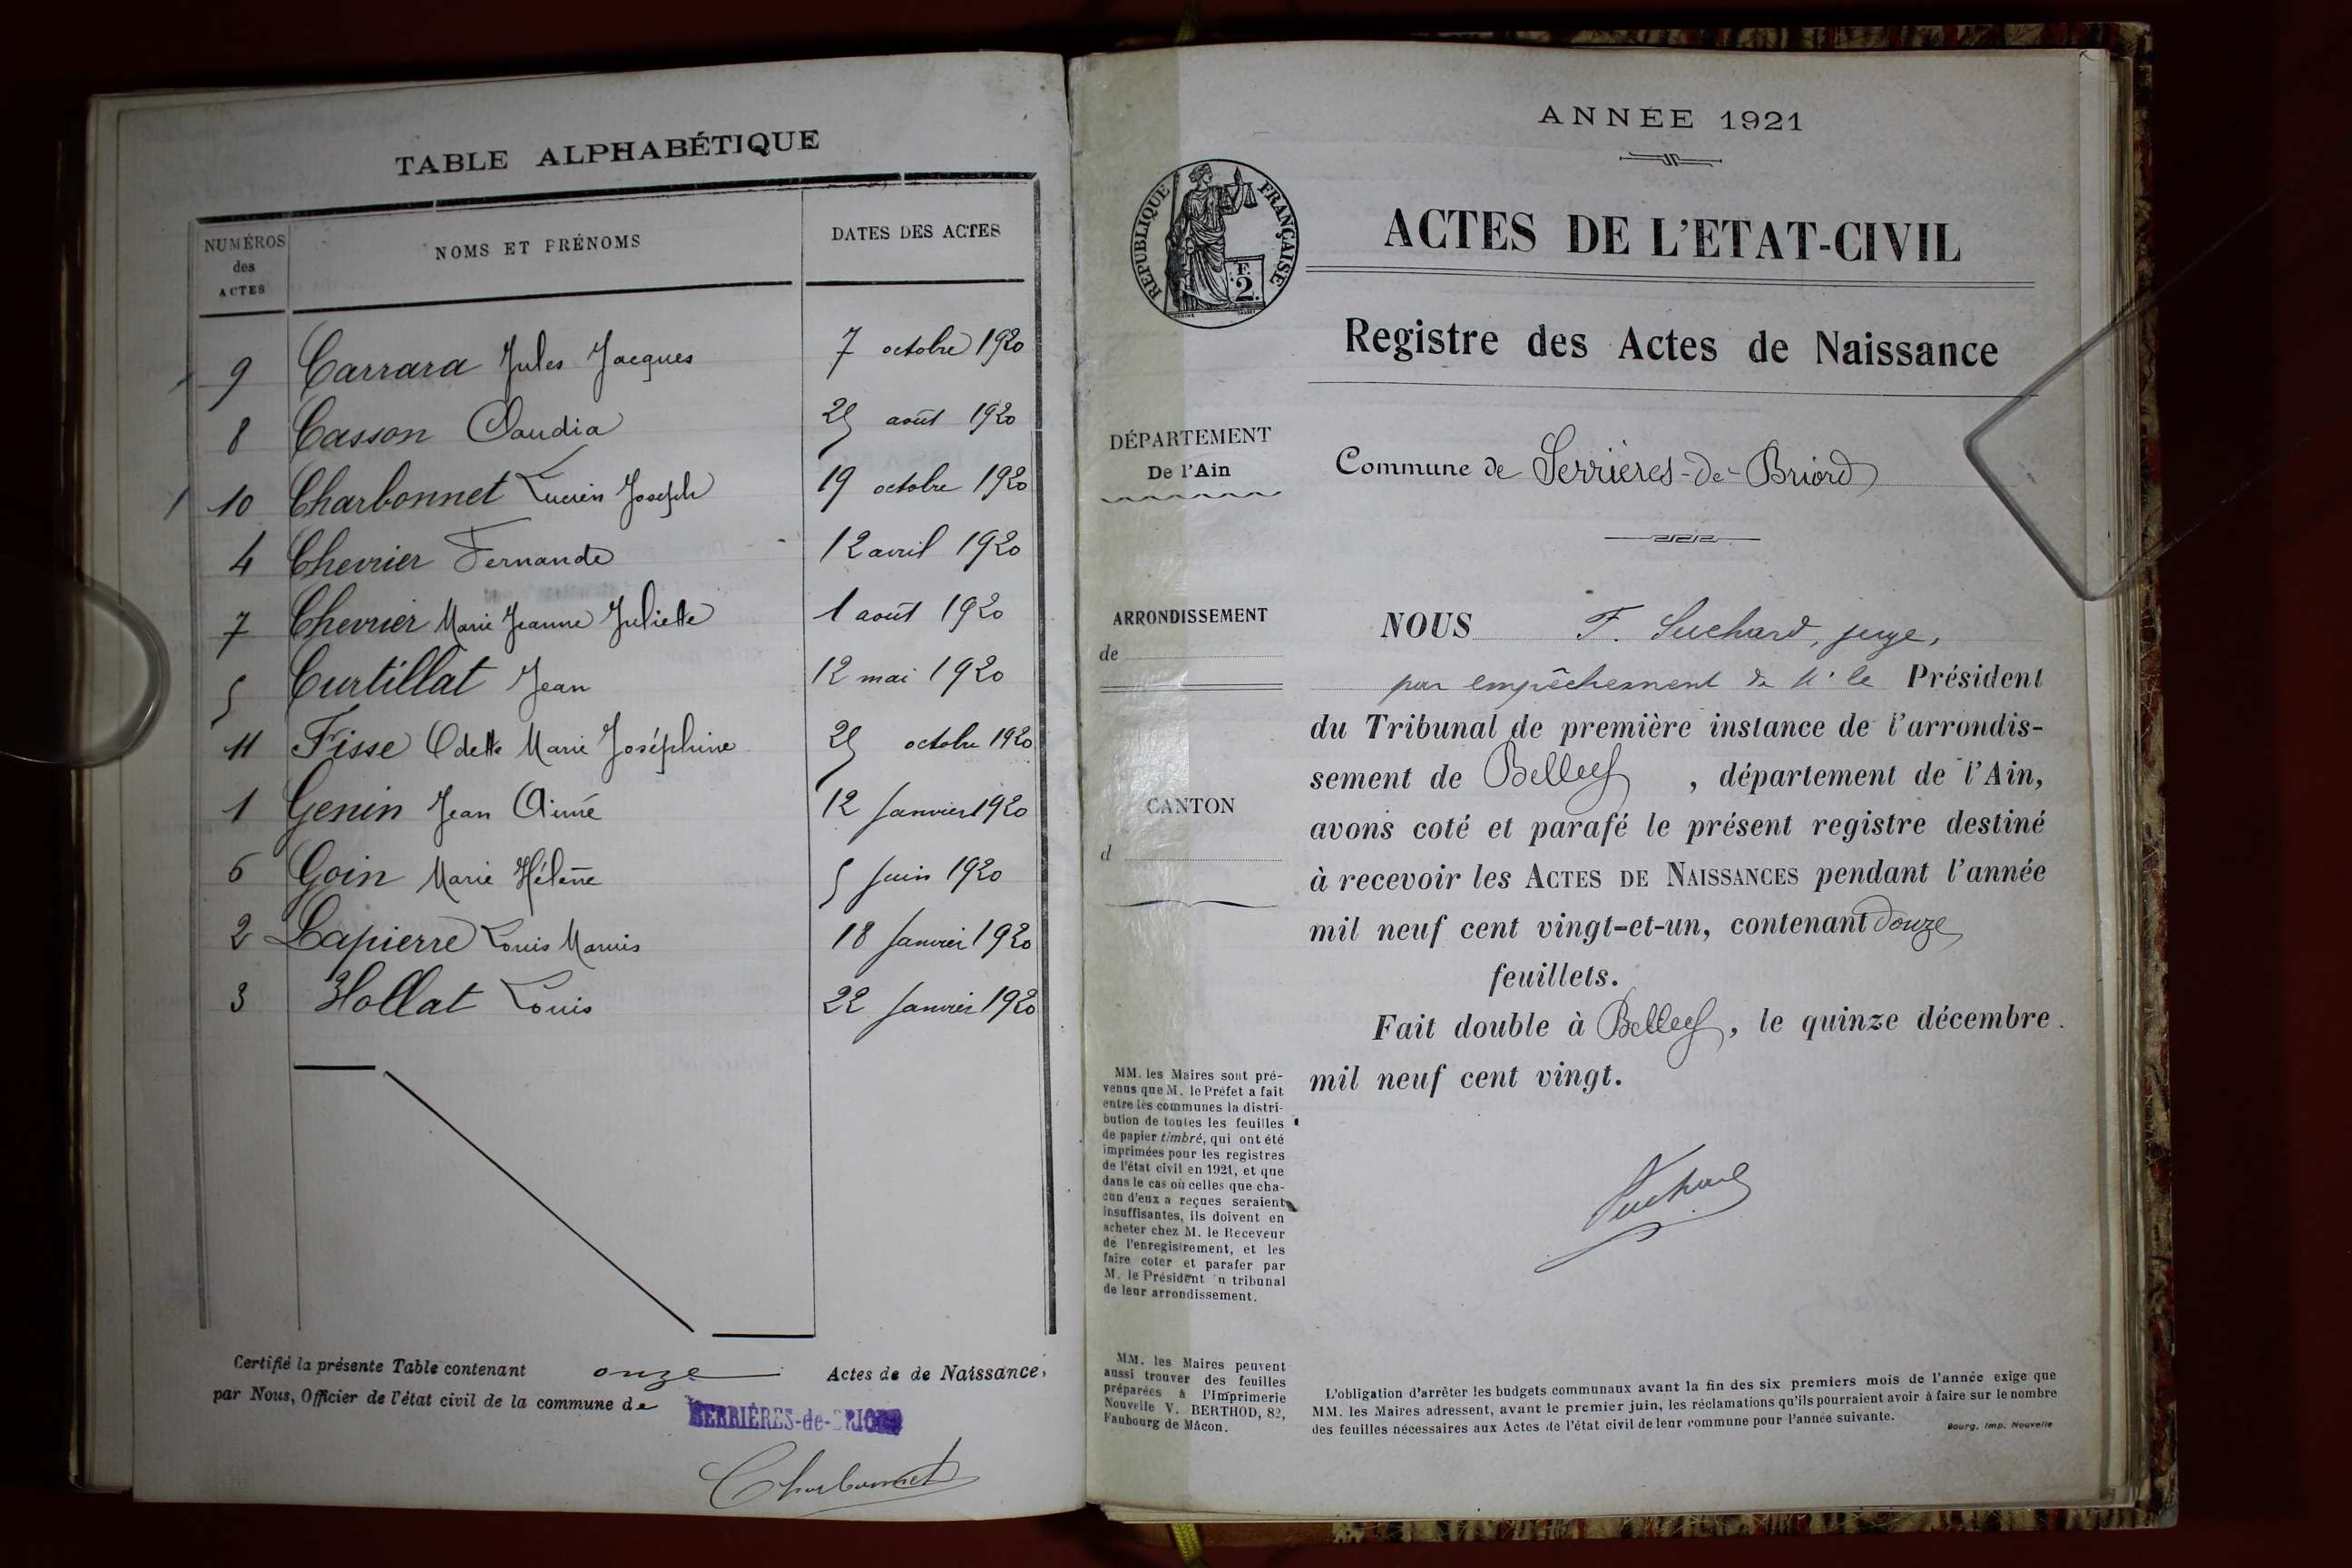 TABLE ALPHABÉTIQUE
NUMÉROS des ACTES NOMS ET PRÉNOMS DATES DES ACTES
9 Carrara Jules Jacques 7 octobre 1920
8 Casson Claudia 25 août 1920
10 Charbonnet Lucien Joseph 19 octobre 1920
4 Chevrier Fernande 12 avril 1920
7 Chevrier Marie Jeanne Juliette 1 août 1920
5 Curtillat Jean 12 mai 1920
11 Fisse Odette Marie Joséphine 25 octobre 1920
1 Genin Jean Aimé 12 Janvier 1920
6 Goin Marie Hélène 5 Juin 1920
2 Lapierre Louis Marius 18 Janvier 1920
3 Hollat Louis 22 Janvier 1920
Certifié la présente Table contenant onze Actes de de Naissance,
par Nous, Officier de l'état civil de la commune de SERRIÈRES-de-BRIORD
Charbonnet
ANNÉE 1921
RÉPUBLIQUE FRANÇAISE
2 F.
ACTES DE L'ETAT-CIVIL
Registre des Actes de Naissance
DÉPARTEMENT
De l'Ain
Commune de Serrières-de-Briord
ARRONDISSEMENT
de
CANTON
d
NOUS F. Suchard, juge,
par empêchement de M. le Président
du Tribunal de première instance de l'arrondis-
sement de Belley, département de l'Ain,
avons coté et parafé le présent registre destiné
à recevoir les ACTES DE NAISSANCES pendant l'année
mil neuf cent vingt-et-un, contenant douze
feuillets.
Fait double à Belley, le quinze décembre
mil neuf cent vingt.
Suchard
MM. les Maires sont pré-
venus que M. le Préfet a fait
entre les communes la distri-
bution de toutes les feuilles
de papier timbré, qui ont été
imprimées pour les registres
de l'état civil en 1921, et que
dans le cas où celles que cha-
cun d'eux a reçues seraient
insuffisantes, ils doivent en
acheter chez M. le Receveur
de l'enregistrement, et les
faire coter et parafer par
M. le Président u tribunal
de leur arrondissement.
MM. les Maires peuvent
aussi trouver des feuilles
préparées à l'Imprimerie
Nouvelle V. BERTHOD, 82,
Faubourg de Mâcon.
L'obligation d'arrêter les budgets communaux avant la fin des six premiers mois de l'année exige que
MM. les Maires adressent, avant le premier juin, les réclamations qu'ils pourraient avoir à faire sur le nombre
des feuilles nécessaires aux Actes de l'état civil de leur commune pour l'année suivante.
Bourg. Imp. Nouvelle